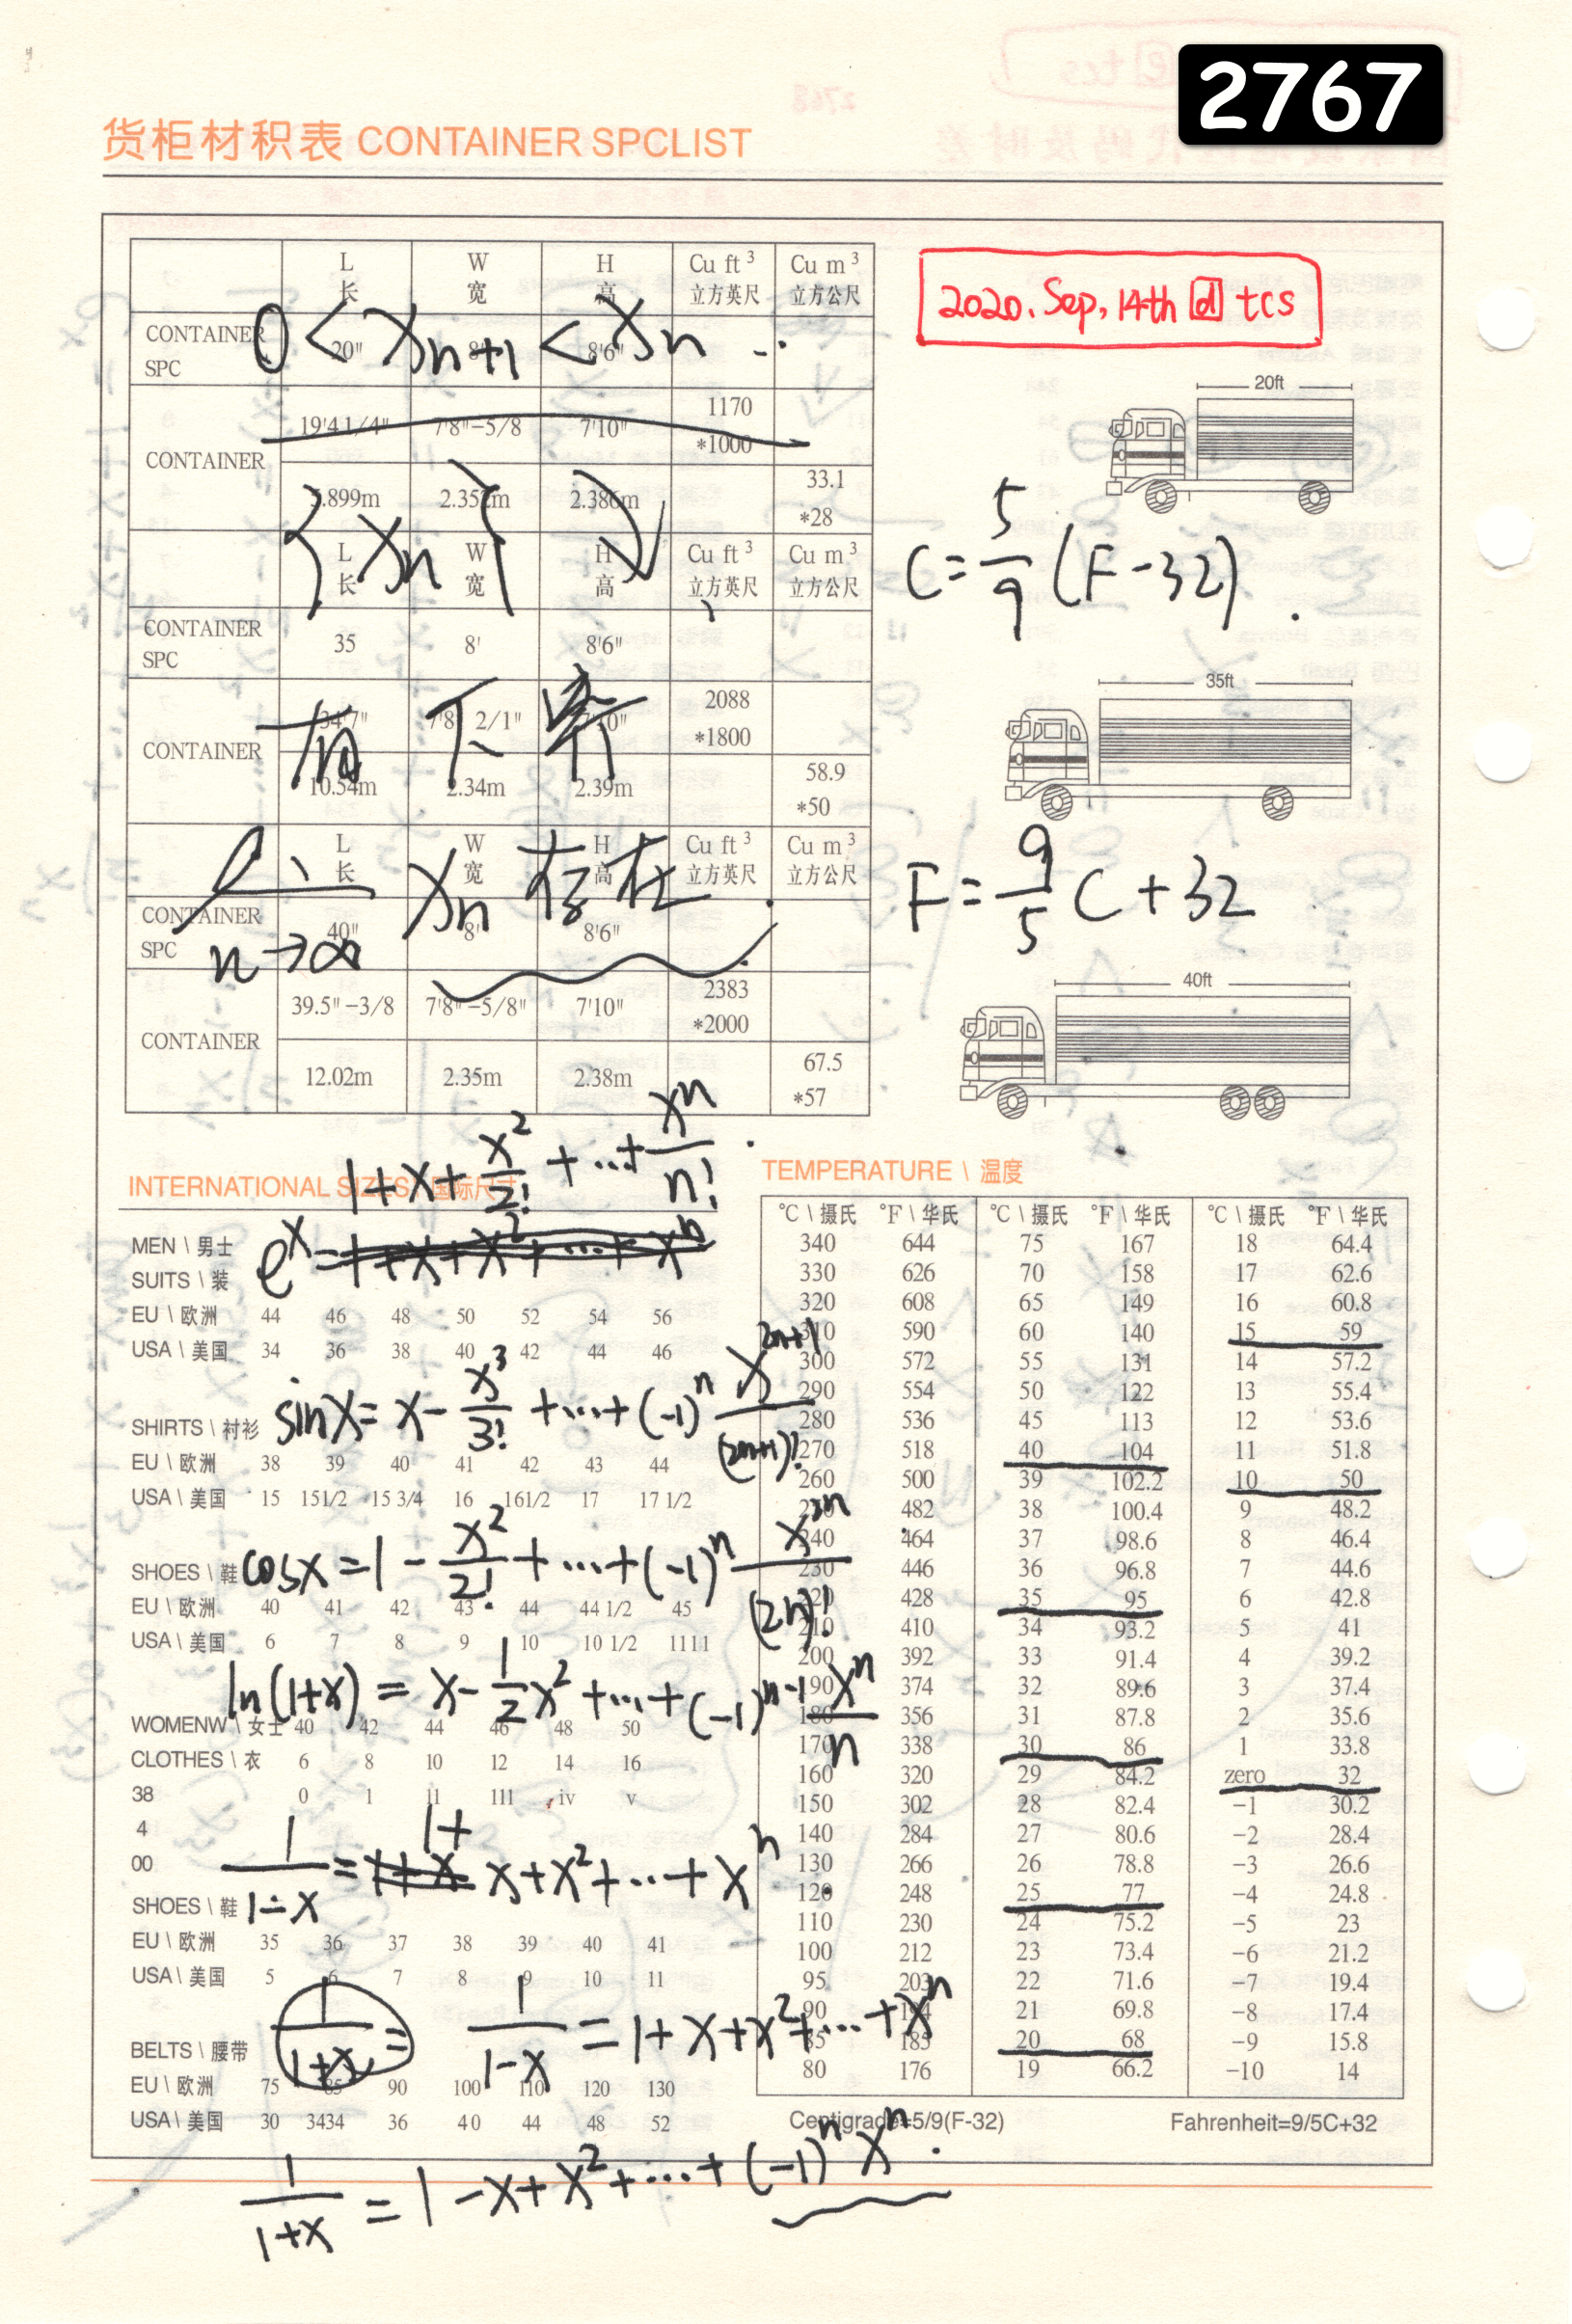 2767
货柜材积表 CONTAINER SPCLIST
2020. Sep, 14th d tcs
L 长 W 宽 H 高 Cu ft³ 立方英尺 Cu m³ 立方公尺
CONTAINER SPC 20" 8' 8'6"
0 < xn+1 < xn ...
CONTAINER 19'4 1/4" 7'8"-5/8 7'10" 1170 *1000
5.899m 2.352m 2.386m 33.1 *28
{xn} ↘
L 长 W 宽 H 高 Cu ft³ 立方英尺 Cu m³ 立方公尺
CONTAINER SPC 35 8' 8'6"
CONTAINER 34'7" 7'8 2/1" 7'10" 2088 *1800
有下界
10.54m 2.34m 2.39m 58.9 *50
L 长 W 宽 H 高 Cu ft³ 立方英尺 Cu m³ 立方公尺
xn 存在.
n→∞
CONTAINER SPC 40" 8' 8'6"
CONTAINER 39.5"-3/8 7'8"-5/8" 7'10" 2383 *2000
12.02m 2.35m 2.38m 67.5 *57
20ft
C = 5/9 (F-32).
35ft
F = 9/5 C + 32
40ft
1+x+x²/2!+...+xⁿ/n!.
INTERNATIONAL SIZES \ 国际尺寸
MEN \ 男士
eˣ = 1+x+x²+...+xⁿ
SUITS \ 装
EU \ 欧洲 44 46 48 50 52 54 56
USA \ 美国 34 36 38 40 42 44 46
sinx = x - x³/3! + ... + (-1)ⁿ x²ⁿ⁺¹/(2n+1)!
SHIRTS \ 衬衫
EU \ 欧洲 38 39 40 41 42 43 44
USA \ 美国 15 151/2 15 3/4 16 161/2 17 17 1/2
cosx = 1 - x²/2! + ... + (-1)ⁿ x²ⁿ/(2n)!
SHOES \ 鞋
EU \ 欧洲 40 41 42 43 44 44 1/2 45
USA \ 美国 6 7 8 9 10 10 1/2 1111
ln(1+x) = x - 1/2 x² + ... + (-1)ⁿ⁻¹ xⁿ/n
WOMENW \ 女士 40 42 44 46 48 50
CLOTHES \ 衣 6 8 10 12 14 16
38 0 1 11 111 iv v
4
00
1/(1-x) = 1+x 1+ x+x²+...+xⁿ
SHOES \ 鞋
EU \ 欧洲 35 36 37 38 39 40 41
USA \ 美国 5 6 7 8 9 10 11
1/(1+x) = 1/(1-x) = 1+x+x²+...+xⁿ
BELTS \ 腰带
EU \ 欧洲 75 85 90 100 110 120 130
USA \ 美国 30 3434 36 40 44 48 52
1/(1+x) = 1-x+x²+...+(-1)ⁿxⁿ.
TEMPERATURE \ 温度
°C \ 摄氏 °F \ 华氏 °C \ 摄氏 °F \ 华氏 °C \ 摄氏 °F \ 华氏
340 644 75 167 18 64.4
330 626 70 158 17 62.6
320 608 65 149 16 60.8
310 590 60 140 15 59
300 572 55 131 14 57.2
290 554 50 122 13 55.4
280 536 45 113 12 53.6
270 518 40 104 11 51.8
260 500 39 102.2 10 50
250 482 38 100.4 9 48.2
240 464 37 98.6 8 46.4
230 446 36 96.8 7 44.6
220 428 35 95 6 42.8
210 410 34 93.2 5 41
200 392 33 91.4 4 39.2
190 374 32 89.6 3 37.4
180 356 31 87.8 2 35.6
170 338 30 86 1 33.8
160 320 29 84.2 zero 32
150 302 28 82.4 -1 30.2
140 284 27 80.6 -2 28.4
130 266 26 78.8 -3 26.6
120 248 25 77 -4 24.8
110 230 24 75.2 -5 23
100 212 23 73.4 -6 21.2
95 203 22 71.6 -7 19.4
90 194 21 69.8 -8 17.4
85 185 20 68 -9 15.8
80 176 19 66.2 -10 14
Centigrade=5/9(F-32) Fahrenheit=9/5C+32